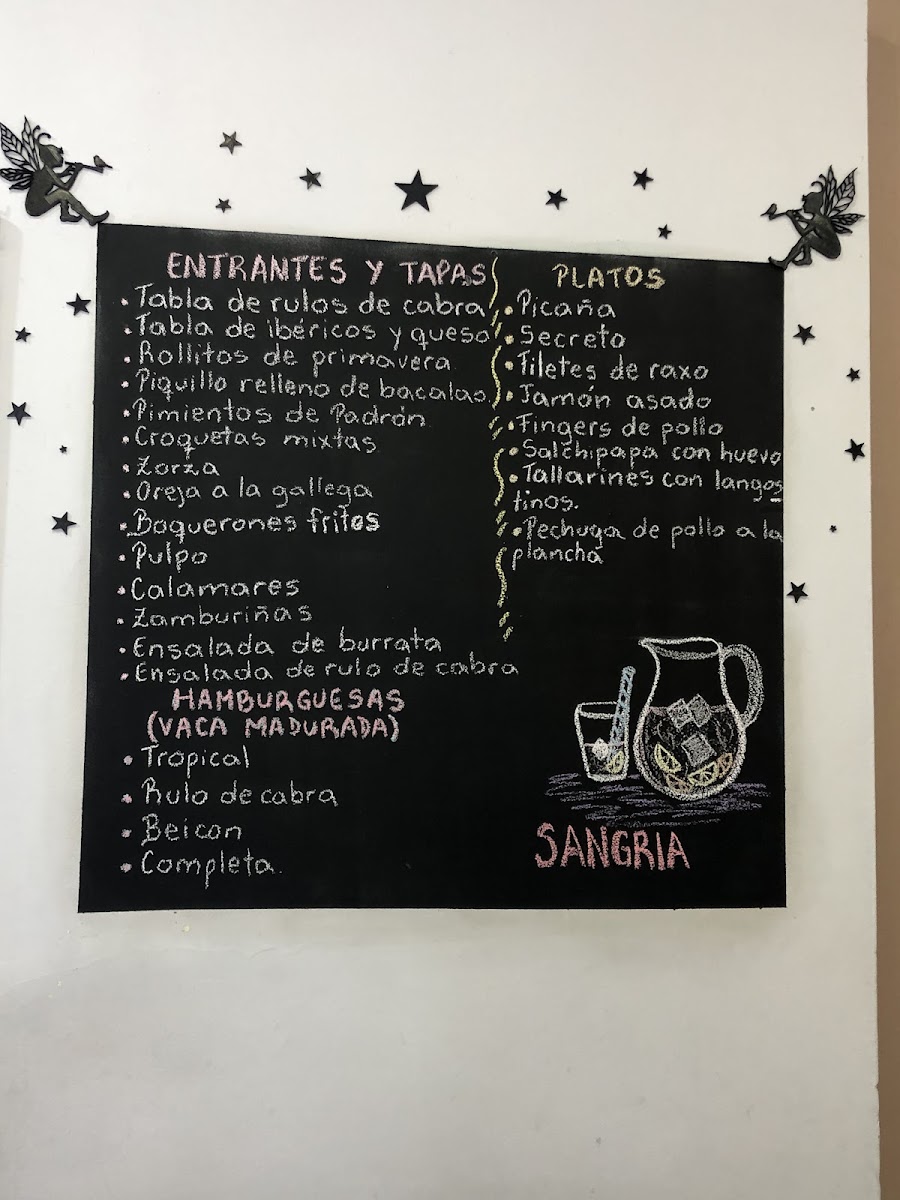 ENTRANTES Y TAPAS
• Tabla de rulos de cabra
• Tabla de ibéricos y queso
• Rollitos de primavera
• Piquillo relleno de bacalao
• Pimientos de Padrón
• Croquetas mixtas
• Zorza
• Oreja a la gallega
• Boquerones fritos
• Pulpo
• Calamares
• Zamburiñas
• Ensalada de burrata
• Ensalada de rulo de cabra
HAMBURGUESAS
(VACA MADURADA)
• Tropical
• Rulo de cabra
• Beicon
• Completa.
PLATOS
• Picaña
• Secreto
• Filetes de raxo
• Jamón asado
• Fingers de pollo
• Salchipapa con huevo
• Tallarines con langos
tinos.
• Pechuga de pollo a la
plancha
SANGRIA